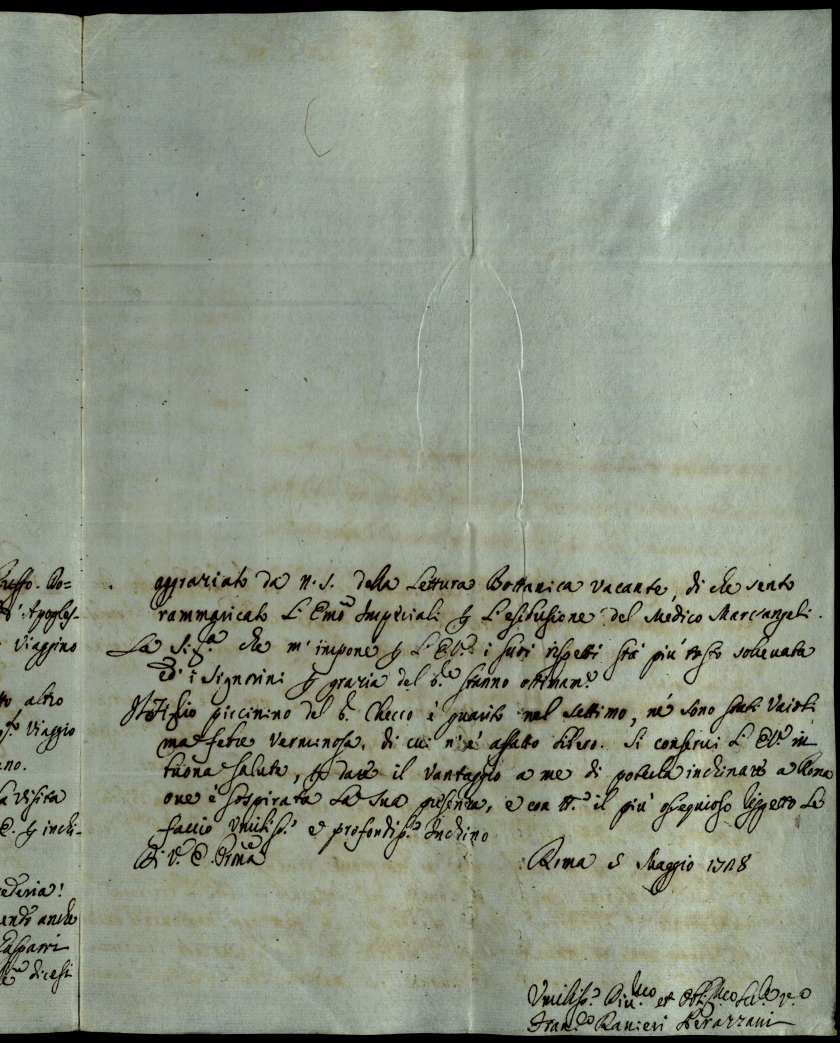 ruffo. Do=
d' Apoples-
Viaggino
to altro
Viaggio
no.
la Visita
E. ꝑ inchi-
rederia!
ando anche
Gasparri
dicesi
aggraziato da N. S. della Lettura Bottanica vacante, di che sento
rammaricato L'Emo Imperiali ꝑ L'esclusione del Medico Marcangeli.
La Sig.ra che m'impone ꝑ L'E.V. i suoi rispetti stà più tosto sollevata
ed' i Signorini ꝑ grazia del S.e stanno ottimam.e
Il Figlio piccinino del S. Checco è guarito nel settimo, nè sono stati Vaioli
ma febre verminosa, di cui n'è affatto libero. Si conservi L'E.V. in
buona salute, ꝑ dare il vantaggio a me di poterla inchinare a Roma
ove è sospirata La Sua presenza, e con tt.o il più ossequioso rispetto Le
faccio Umiliss.o e profondiss.o Inchino
Di V. E. Rma
Roma 5 Maggio 1788
Umiliss.o Div.mo et Obb.mo
Fran.co Ranieri Perazzani